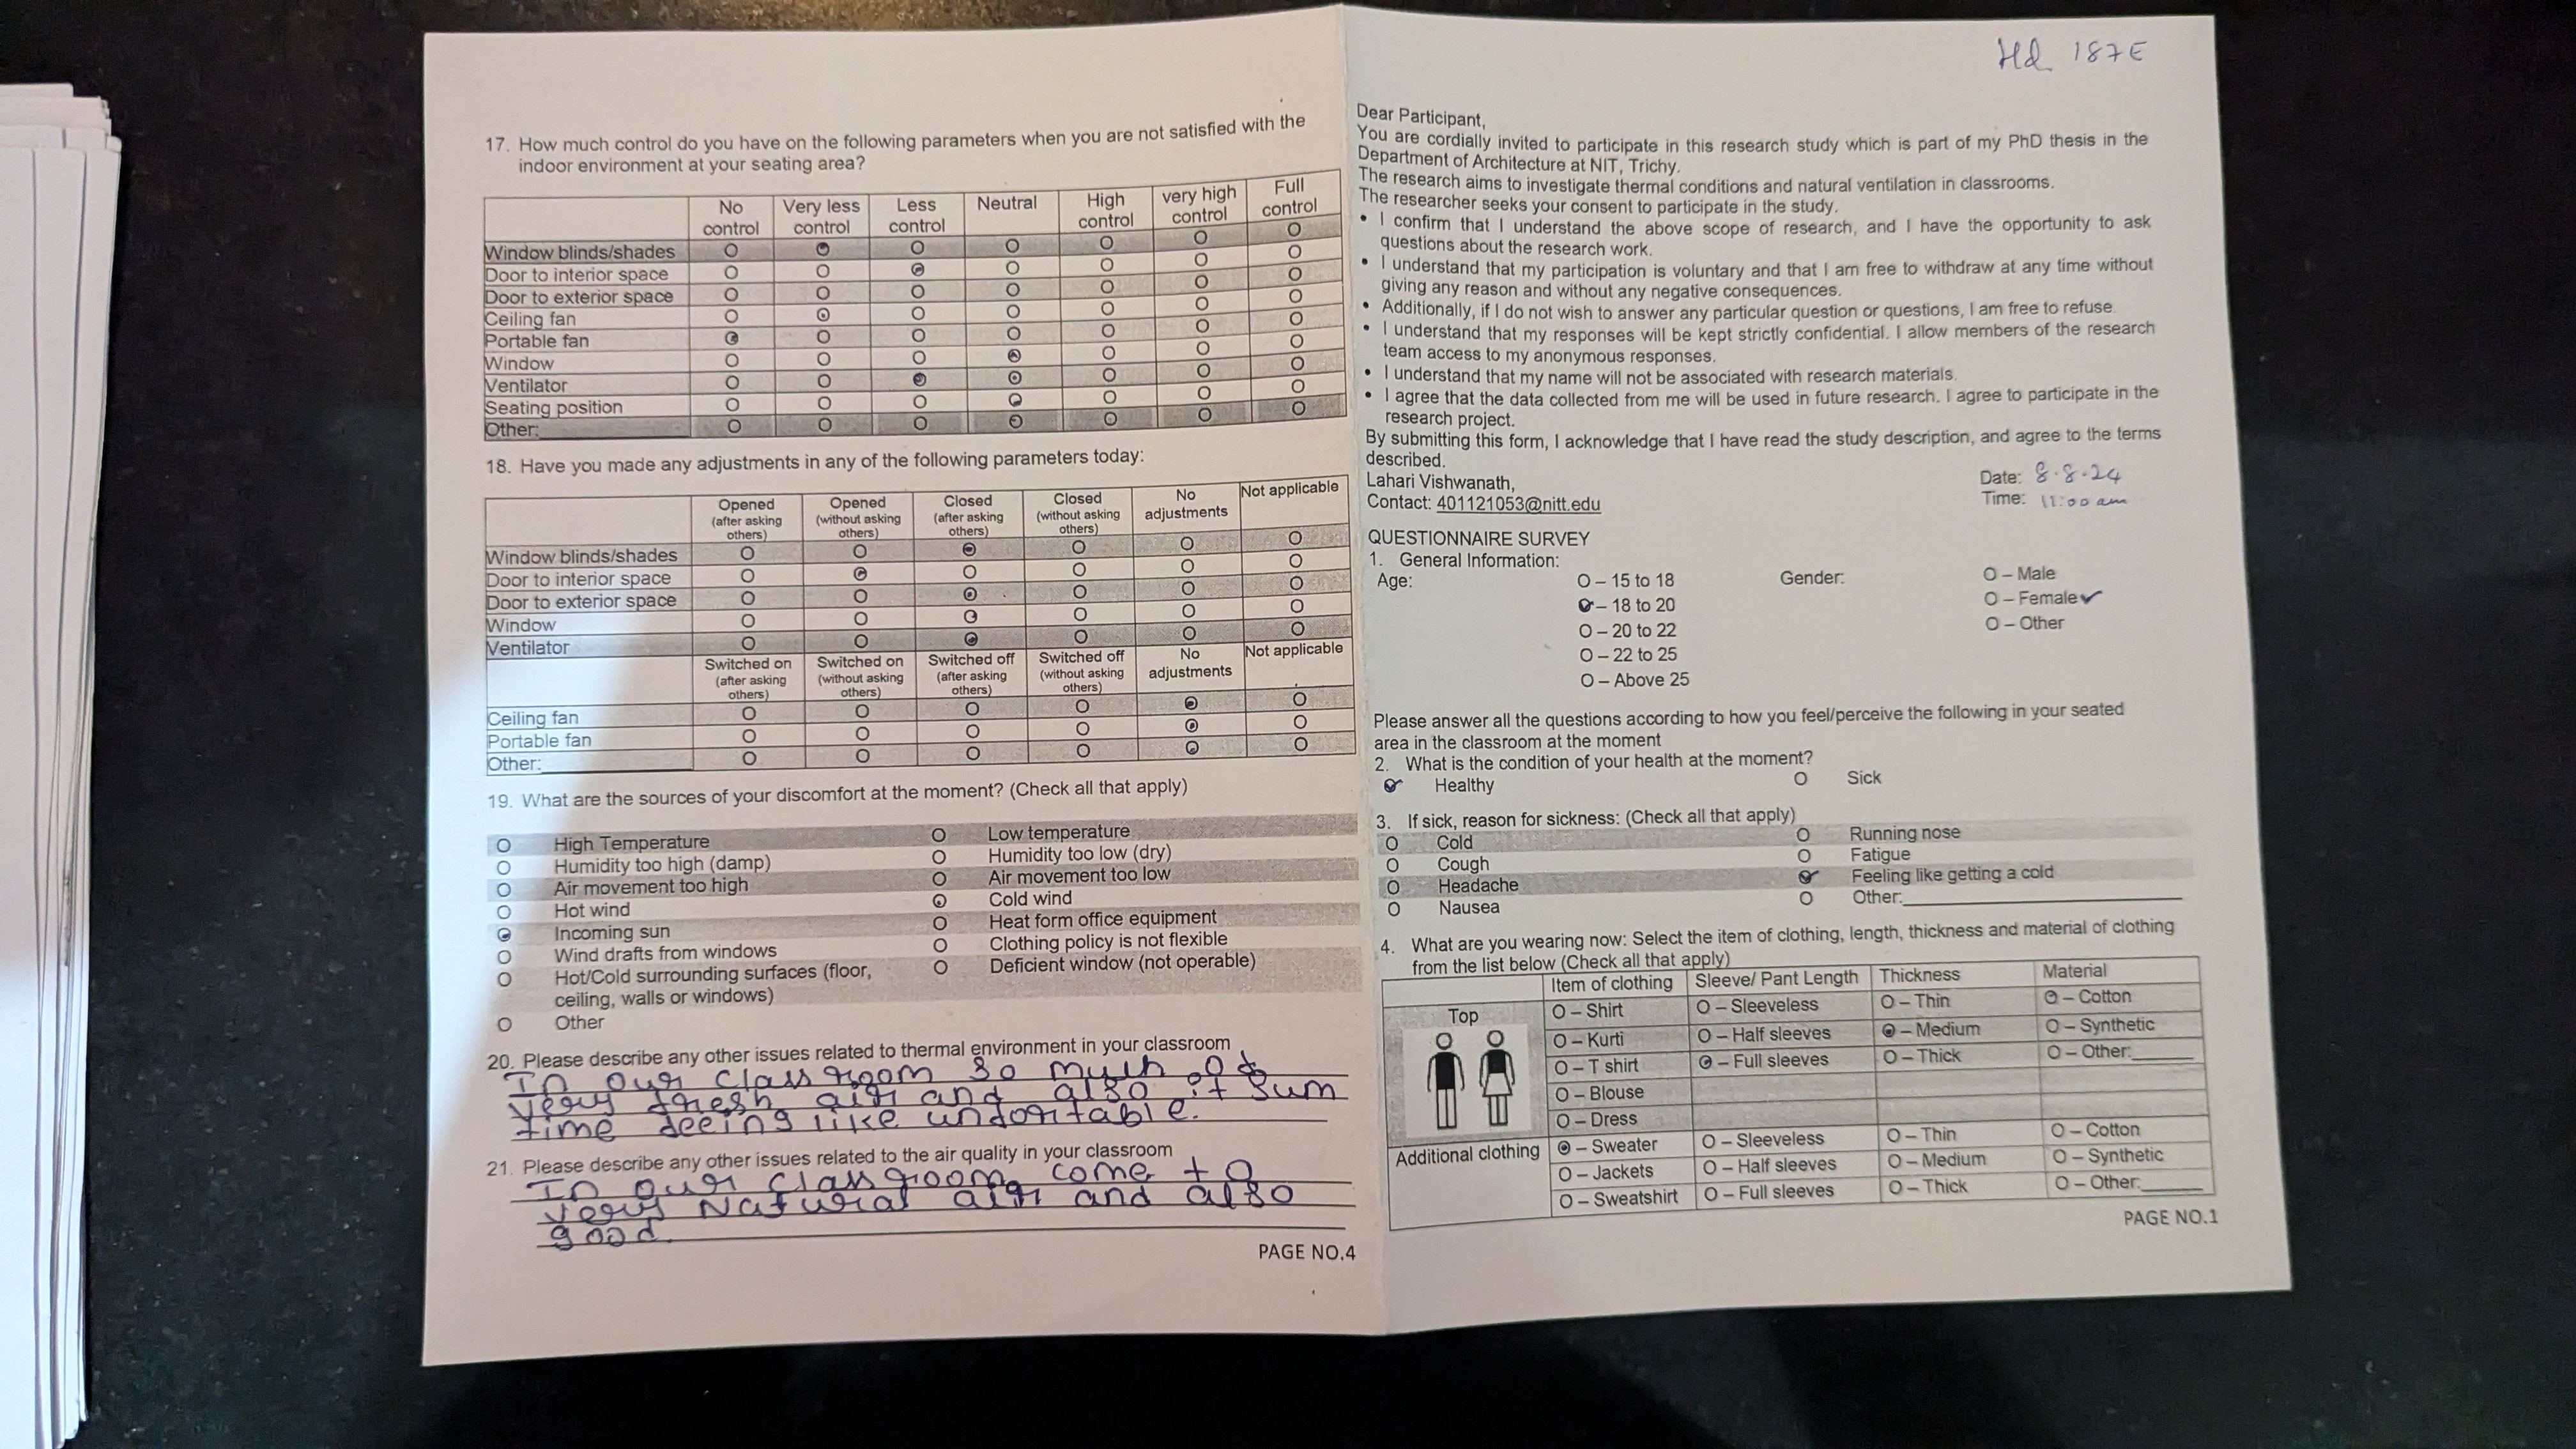 17. How much control do you have on the following parameters when you are not satisfied with the
indoor environment at your seating area?
No control Very less control Less control Neutral High control very high control Full control
Window blinds/shades
Door to interior space
Door to exterior space
Ceiling fan
Portable fan
Window
Ventilator
Seating position
Other:
18. Have you made any adjustments in any of the following parameters today:
Opened (after asking others) Opened (without asking others) Closed (after asking others) Closed (without asking others) No adjustments Not applicable
Window blinds/shades
Door to interior space
Door to exterior space
Window
Ventilator
Switched on (after asking others) Switched on (without asking others) Switched off (after asking others) Switched off (without asking others) No adjustments Not applicable
Ceiling fan
Portable fan
Other:
19. What are the sources of your discomfort at the moment? (Check all that apply)
High Temperature Low temperature
Humidity too high (damp) Humidity too low (dry)
Air movement too high Air movement too low
Hot wind Cold wind
Incoming sun Heat form office equipment
Wind drafts from windows Clothing policy is not flexible
Hot/Cold surrounding surfaces (floor, Deficient window (not operable)
ceiling, walls or windows)
Other
20. Please describe any other issues related to thermal environment in your classroom
In our classroom so much of
very fresh air and also it sum
time feeing like unfortable.
21. Please describe any other issues related to the air quality in your classroom
In our classroom come to
very Natural air and also
good.
PAGE NO.4
187E
Dear Participant,
You are cordially invited to participate in this research study which is part of my PhD thesis in the
Department of Architecture at NIT, Trichy.
The research aims to investigate thermal conditions and natural ventilation in classrooms.
The researcher seeks your consent to participate in the study.
• I confirm that I understand the above scope of research, and I have the opportunity to ask
questions about the research work.
• I understand that my participation is voluntary and that I am free to withdraw at any time without
giving any reason and without any negative consequences.
• Additionally, if I do not wish to answer any particular question or questions, I am free to refuse.
• I understand that my responses will be kept strictly confidential. I allow members of the research
team access to my anonymous responses.
• I understand that my name will not be associated with research materials.
• I agree that the data collected from me will be used in future research. I agree to participate in the
research project.
By submitting this form, I acknowledge that I have read the study description, and agree to the terms
described.
Lahari Vishwanath,
Contact: 401121053@nitt.edu
Date: 8.8.24
Time: 11:00 am
QUESTIONNAIRE SURVEY
1. General Information:
Age: O – 15 to 18 Gender: O – Male
O – 18 to 20 O – Female
O – 20 to 22 O – Other
O – 22 to 25
O – Above 25
Please answer all the questions according to how you feel/perceive the following in your seated
area in the classroom at the moment
2. What is the condition of your health at the moment?
Healthy Sick
3. If sick, reason for sickness: (Check all that apply)
Cold Running nose
Cough Fatigue
Headache Feeling like getting a cold
Nausea Other:
4. What are you wearing now: Select the item of clothing, length, thickness and material of clothing
from the list below (Check all that apply)
Item of clothing Sleeve/ Pant Length Thickness Material
Top O – Shirt O – Sleeveless O – Thin O – Cotton
O – Kurti O – Half sleeves O – Medium O – Synthetic
O – T shirt O – Full sleeves O – Thick O – Other:
O – Blouse
O – Dress
Additional clothing O – Sweater O – Sleeveless O – Thin O – Cotton
O – Jackets O – Half sleeves O – Medium O – Synthetic
O – Sweatshirt O – Full sleeves O – Thick O – Other:
PAGE NO.1